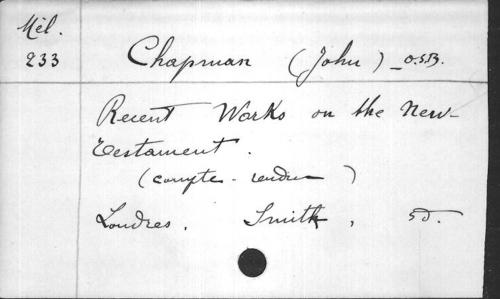 Mél.
233
Chapman (John) _ O.S.B.
Recent Works on the New-
Testament.
(compte-rendu)
Londres. Smith, sd.